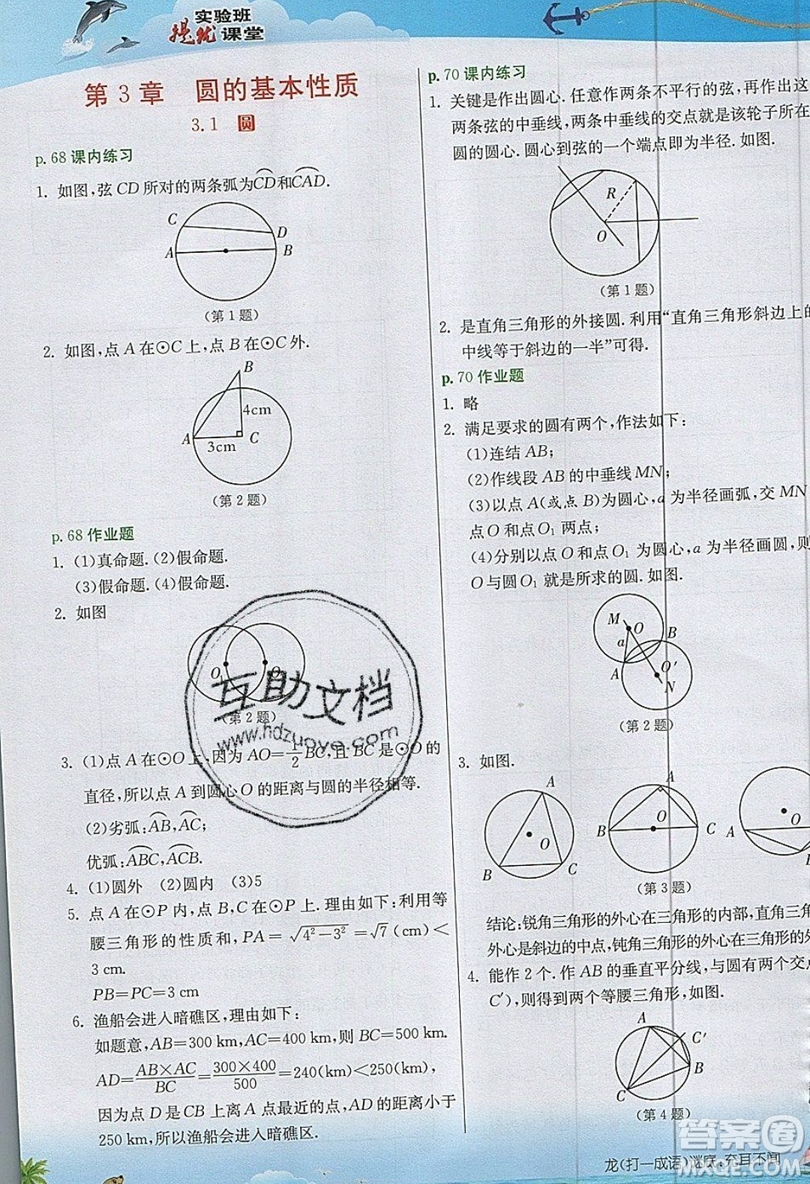 实验班
提优课堂
第3章 圆的基本性质
3.1 圆
p.68课内练习
1. 如图,弦CD所对的两条弧为CD和CAD.
C
D
A
B
(第1题)
2. 如图,点A在⊙C上,点B在⊙C外.
B
4cm
A
C
3cm
(第2题)
p.68作业题
1. (1)真命题.(2)假命题.
(3)假命题.(4)假命题.
2. 如图
O1
(第2题)
3. (1)点A在⊙O上,因为AO=1/2BC,且BC是⊙O的
直径,所以点A到圆心O的距离与圆的半径相等.
(2)劣弧:AB,AC;
优弧:ABC,ACB.
4. (1)圆外 (2)圆内 (3)5
5. 点A在⊙P内,点B,C在⊙P上.理由如下:利用等
腰三角形的性质和,PA=√(4²-3²)=√7(cm)<
3 cm.
PB=PC=3 cm
6. 渔船会进入暗礁区,理由如下:
如题意,AB=300 km,AC=400 km,则BC=500 km.
AD=AB×AC/BC=300×400/500=240(km)<250(km)
因为BC上离A点最近的点为D点,AD的距离小于
250 km,所以渔船会进入暗礁区.
p.70课内练习
1. 关键是作出圆心.任意作两条不平行的弦,再作出这
两条弦的中垂线,两条中垂线的交点就是该轮子所在
圆的圆心.圆心到弦的一个端点即为半径.如图.
R
O
(第1题)
2. 是直角三角形的外接圆.利用“直角三角形斜边上的
中线等于斜边的一半”可得.
p.70作业题
1. 略
2. 满足要求的圆有两个,作法如下:
(1)连结AB;
(2)作线段AB的中垂线MN;
(3)以点A(或点B)为圆心,a为半径画弧,交MN
点O和点O1两点;
(4)分别以点O和点O1为圆心,a为半径画圆,则
O与圆O1就是所求的圆.如图.
M
O
B
a
A
O′
N
(第2题)
3. 如图.
A
O
B
C
A
B
O
C
O
A
B
(第3题)
结论:锐角三角形的外心在三角形的内部,直角三角
外心是斜边的中点,钝角三角形的外心在三角形
4. 能作2个.作AB的垂直平分线,与圆有两个交点
C′),则得到两个等腰三角形,如图.
A
C′
B
C
(第4题)
龙(打一成语)谜底:充耳不闻
互助文档
www.hdzuoye.com
答案圈
MXQE.COM